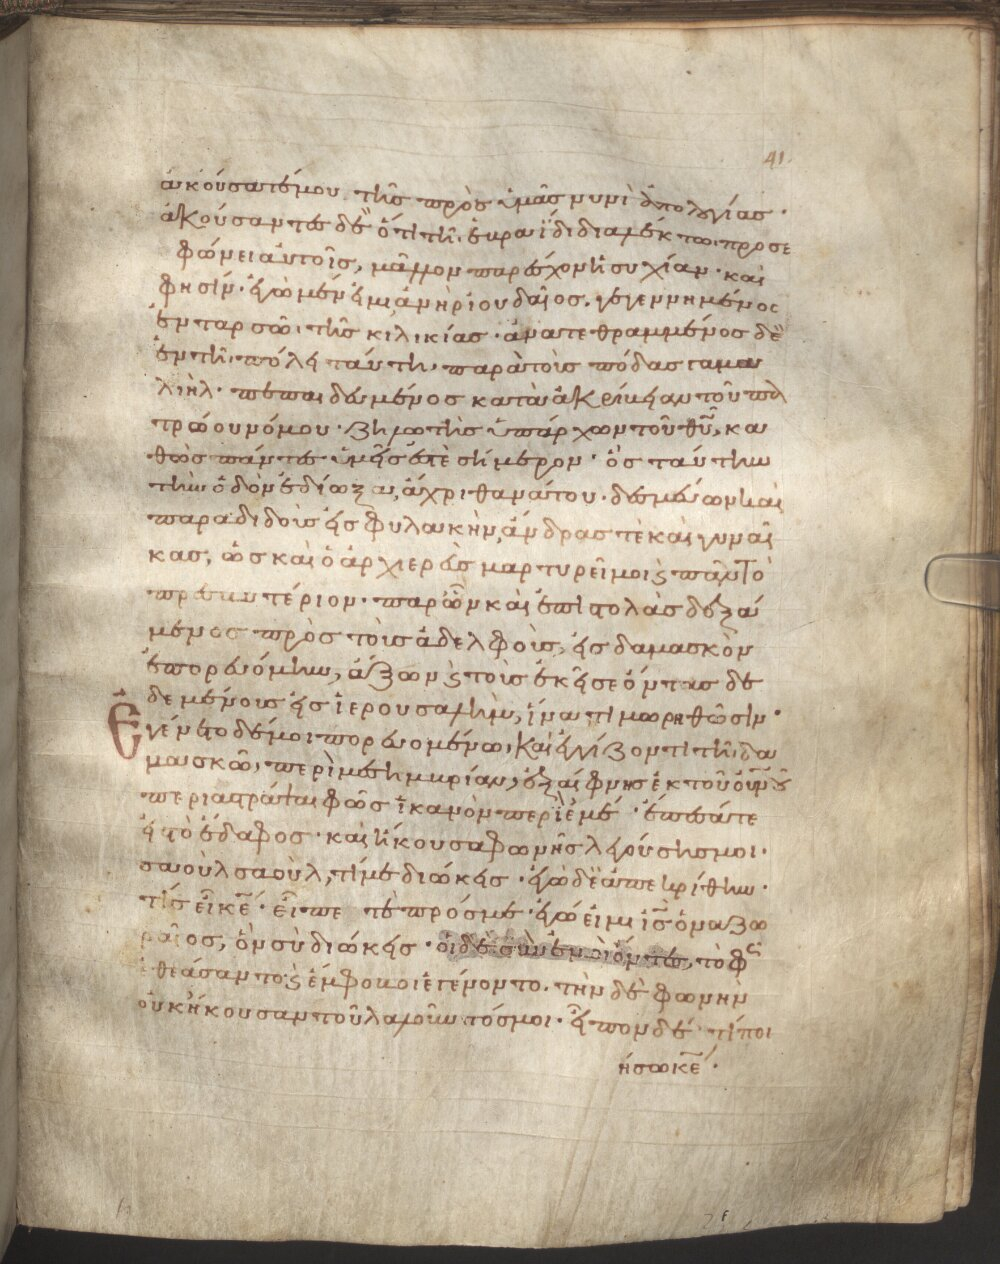 41
ἀκούσατέ μου τῆς πρὸς ὑμᾶς νυνὶ ἀπολογίας ·
ἀκούσαντες δὲ ὅτι τῇ ἑβραΐδι διαλέκτω προσε
φώνει αὐτοῖς, μᾶλλον παρέσχον ἡσυχίαν · καὶ
φησίν · ἐγὼ μέν εἰμι ἀνὴρ ἰουδαῖος · γεγεννημένος
ἐν ταρσῶ τῆς κιλικίας · ἀνατεθραμμένος δὲ
ἐν τῇ πόλει ταύτη παρὰ τοὺς πόδας γαμα
λιὴλ · πεπαιδευμένος κατὰ ἀκρίβειαν τοῦ πα
τρώου νόμου · ζηλωτὴς ὑπάρχων τοῦ θῦ, κα
θὼς πάντες ὑμεῖς ἐστὲ σήμερον · ὃς ταύτην
τὴν ὁδὸν ἐδίωξα, ἄχρι θανάτου · δεσμεύων καὶ
παραδιδοὺς εἰς φυλακὴν, ἄνδρας τὲ καὶ γυναῖ
κας, ὡς καὶ ὁ ἀρχιερεὺς μαρτυρεῖ μοι ϗ πᾶν τὸ
πρεσβυτέριον · παρ' ὧν καὶ ἐπιστολὰς δεξά
μενος πρὸς τοὺς ἀδελφοὺς, εἰς δαμασκὸν
ἐπορευόμην, ἄξων ϗ τοὺς ἐκεῖσε ὄντας δε
δεμένους εἰς ἱερουσαλὴμ, ἵνα τιμωρηθῶσιν ·
Ἐγένετο δέ μοι πορευομένω, καὶ ἐγγίζοντι τῇ δα
μασκῶ, περὶ μεσημβρίαν, ἐξαίφνης ἐκ τοῦ οὐνοῦ
περιαστράψαι φῶς ἱκανὸν περὶ ἐμέ · ἔπεσά τε
εἰς τὸ ἔδαφος · καὶ ἤκουσα φωνῆς λεγούσης μοι ·
σαοὺλ σαοὺλ, τί με διώκεις · ἐγὼ δὲ ἀπεκρίθην ·
τίς εἶ κε · εἶπέ τε πρός με · ἐγώ εἰμι ις ὁ ναζω
ραῖος, ὃν σὺ διώκεις · οἱ δὲ σὺν ἐμοὶ ὄντες, τὸ φῶς
ἐθεάσαντο ϗ ἔμφοβοι ἐγένοντο · τὴν δὲ φωνὴν
οὐκ ἤκουσαν τοῦ λαλοῦντός μοι · εἶπον δέ · τί ποι
ήσω κε ·